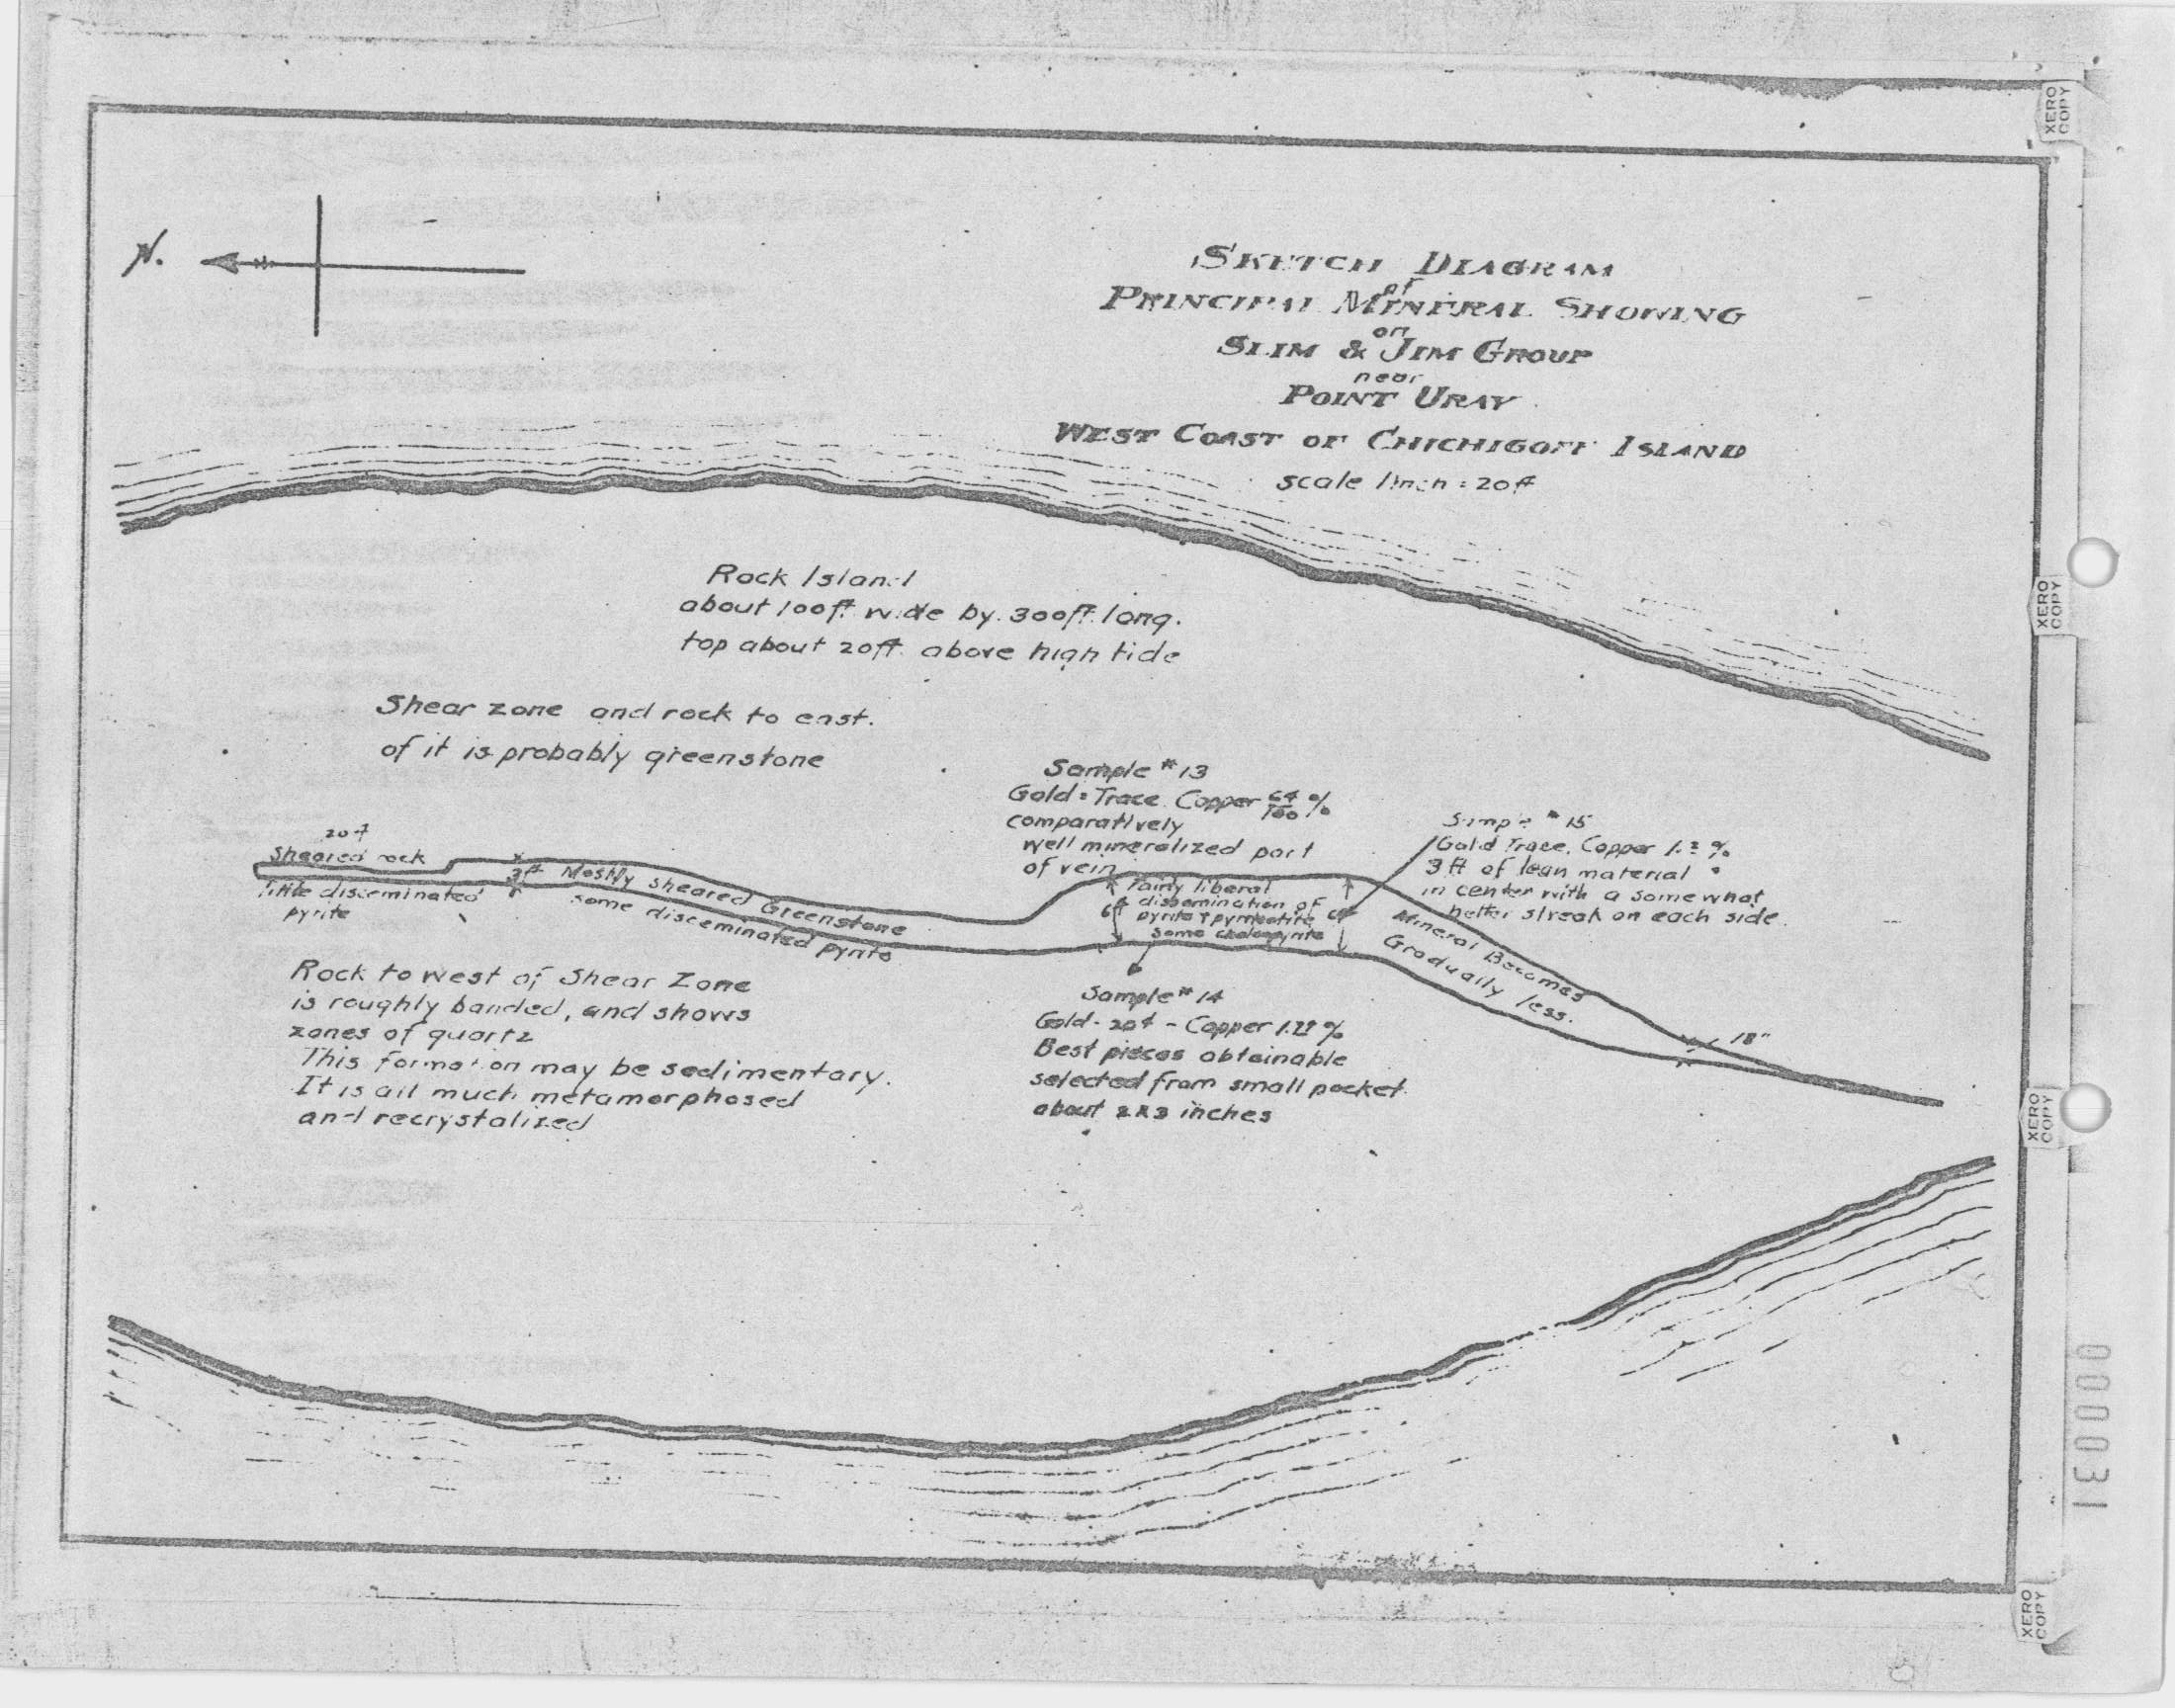 N.
SKETCH DIAGRAM
of
PRINCIPAL MINERAL SHOWING
on
SLIM & JIM GROUP
near
POINT URAY
WEST COAST OF CHICHIGOFF ISLAND
scale 1 inch = 20 ft
Rock Island
about 100 ft. wide by 300 ft. long.
top about 20 ft. above high tide
Shear zone and rock to east.
of it is probably greenstone
Sample # 13
Gold = Trace. Copper 64/100 %
comparatively
well mineralized part
of vein
Sample # 15
Gold Trace. Copper %
3 ft of lean material
in center with a somewhat
better streak on each side.
Sheared rock
little disseminated
pyrite
3 ft
Mostly sheared Greenstone
some disseminated pyrite
Fairly liberal
dissemination of
pyrite & pyrrhotite
some chalcopyrite
6 ft
Mineral Becomes
Gradually less.
18"
Rock to west of Shear Zone
is roughly banded, and shows
zones of quartz
This formation may be sedimentary.
It is all much metamorphosed
and recrystalized
Sample # 14
Gold - 20¢ - Copper %
Best pieces obtainable
selected from small pocket
about 2 x 3 inches
XERO
COPY
XERO
COPY
XERO
COPY
XERO
COPY
000031